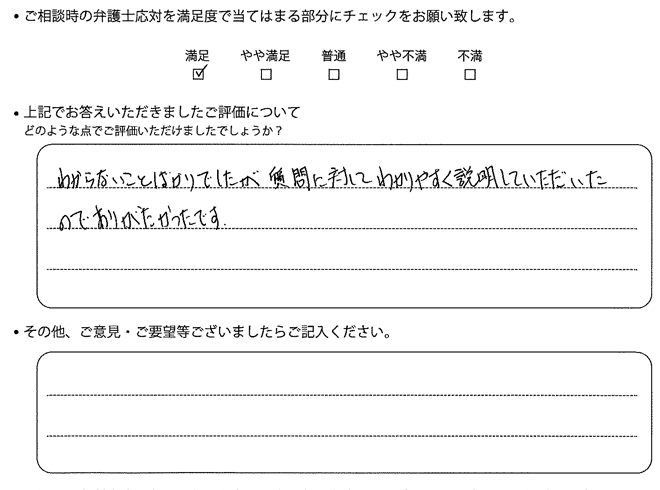 • ご相談時の弁護士応対を満足度で当てはまる部分にチェックをお願い致します。
満足 やや満足 普通 やや不満 不満
• 上記でお答えいただきましたご評価について
どのような点でご評価いただけましたでしょうか？
わからないことばかりでしたが 質問に対してわかりやすく説明していただいた
のでありがたかったです.
• その他、ご意見・ご要望等ございましたらご記入ください。